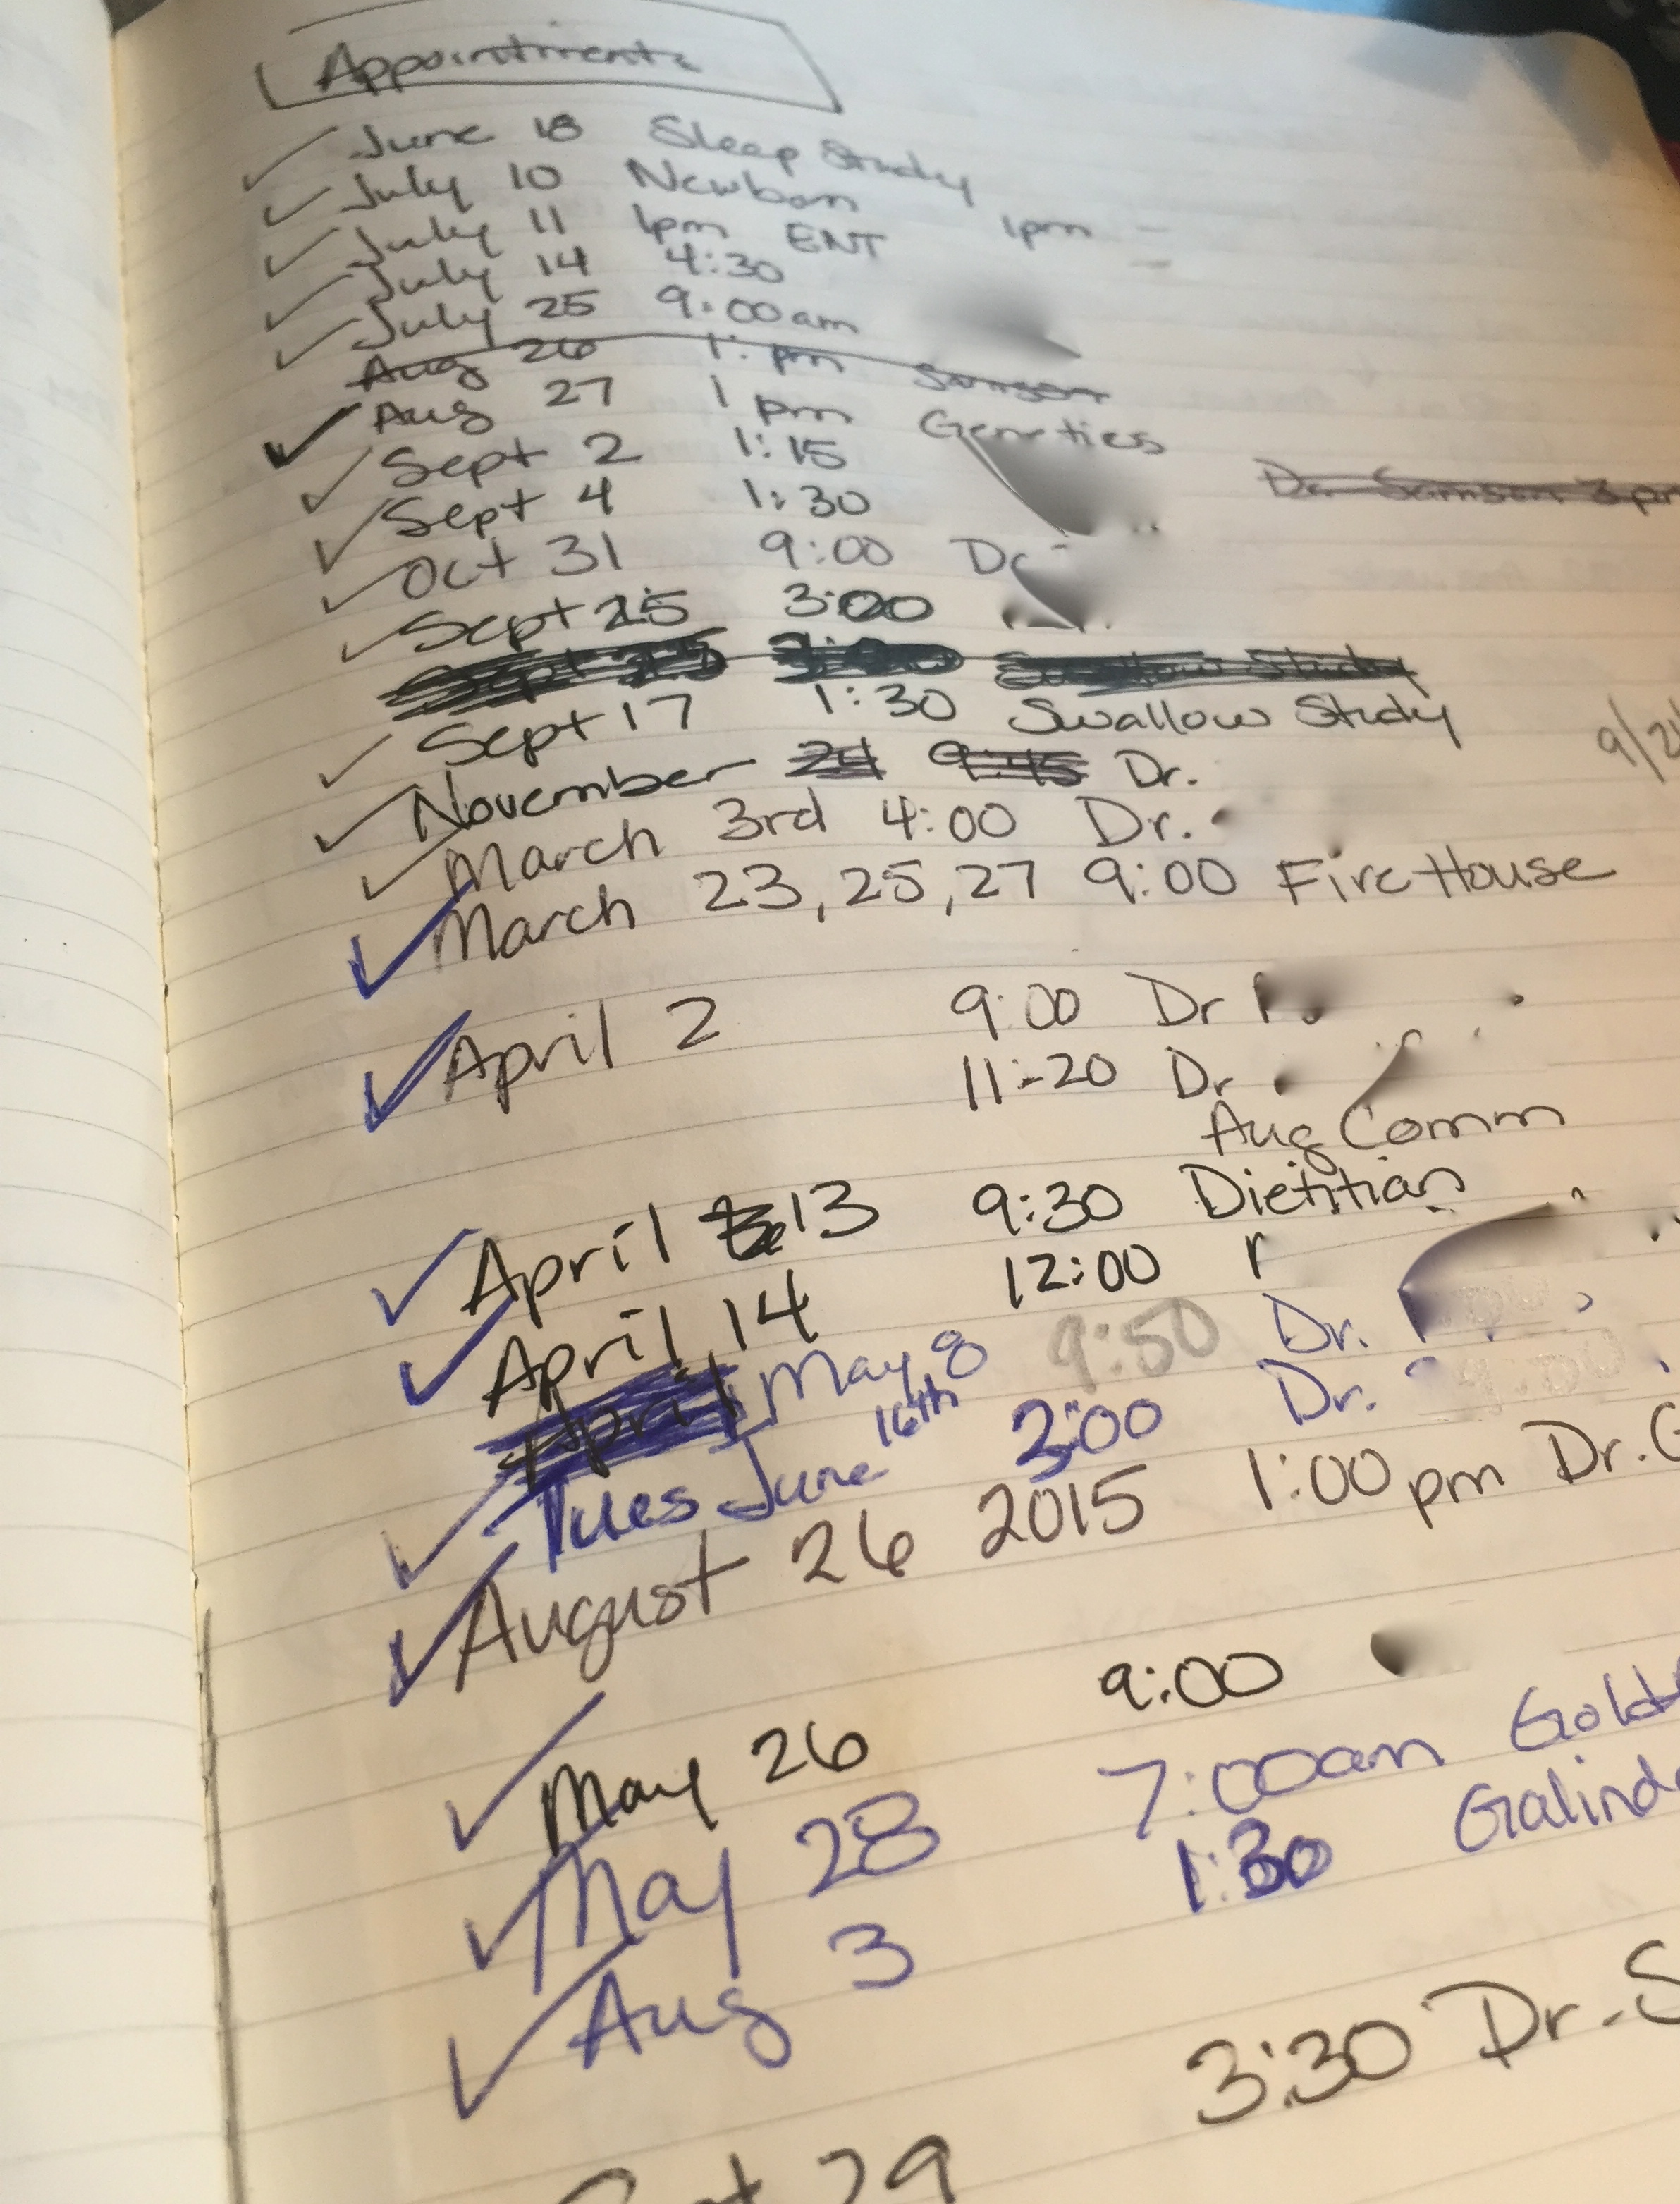 Appointments
June 18 Sleep Study
July 10 Newborn 1pm
July 11 1pm ENT
July 14 4:30
July 25 9:00am
Aug 26 1:pm Samson
Aug 27 1pm Genetics
Sept 2 1:15 Dr. Samson 3pm
Sept 4 1:30
Oct 31 9:00 Dr
Sept 25 3:00
Sept 25 3:00 Swallow Study
Sept 17 1:30 Swallow Study
November 24 9:45 Dr. 9/2
March 3rd 4:00 Dr.
March 23, 25, 27 9:00 Fire House
April 2 9:00 Dr
11:20 Dr
Aug Comm
April 13 9:30 Dietitian
April 14 12:00
April May 8 9:50 Dr.
Tues June 16th 2:00 Dr.
August 26 2015 1:00pm Dr. G
May 26 9:00
May 28 7:00am Gold
Aug 3 1:30 Galind
29 3:30 Dr. S